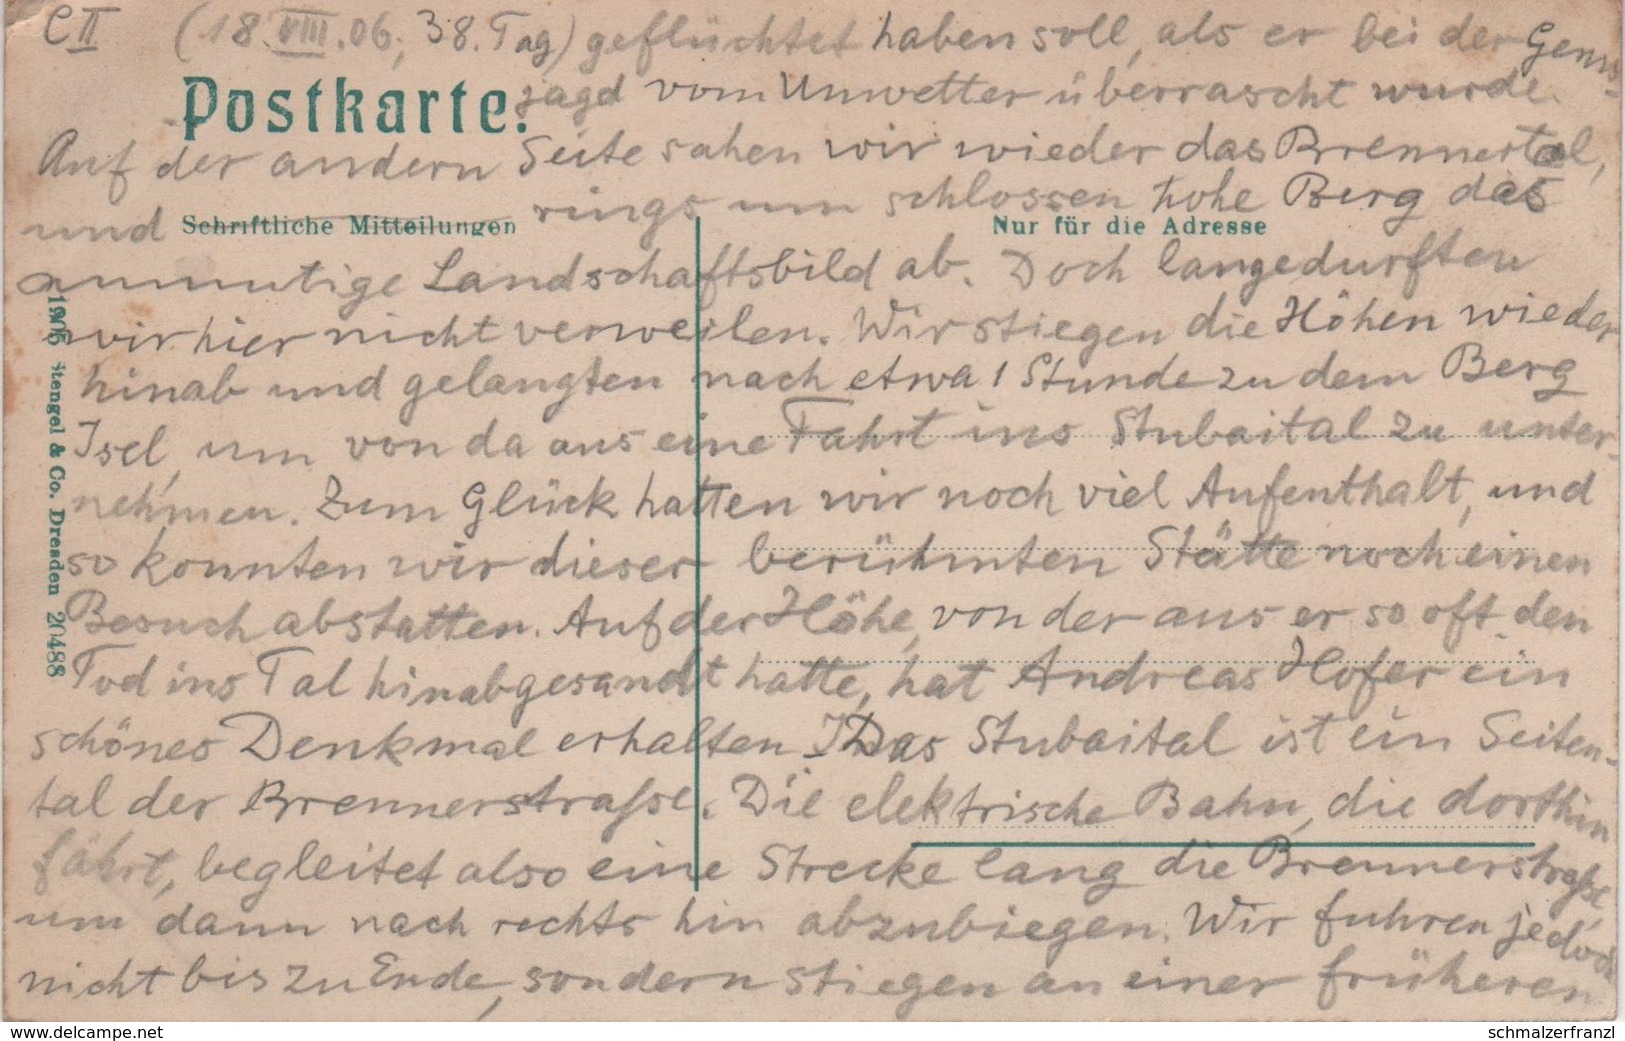 C II (18.VIII.06, 38. Tag) geflüchtet haben soll, als er bei der Gems-
Postkarte. jagd vom Unwetter überrascht wurde.
Auf der andern Seite sahen wir wieder das Brennertal,
und rings um schlossen hohe Berg das
Schriftliche Mitteilungen
Nur für die Adresse
anmutige Landschaftsbild ab. Doch lange durften
wir hier nicht verweilen. Wir stiegen die Höhen wieder
hinab und gelangten nach etwa 1 Stunde zu dem Berg
Isel, um von da aus eine Fahrt ins Stubaital zu unter-
nehmen. Zum Glück hatten wir noch viel Aufenthalt, und
so konnten wir dieser berühmten Stätte noch einen
Besuch abstatten. Auf der Höhe, von der aus er so oft den
Tod ins Tal hinabgesandt hatte, hat Andreas Hofer ein
schönes Denkmal erhalten. Das Stubaital ist ein Seiten-
tal der Brennerstraße. Die elektrische Bahn, die dorthin
fährt, begleitet also eine Strecke lang die Brennerstraße,
um dann nach rechts hin abzubiegen. Wir fuhren jedoch
nicht bis zu Ende, sondern stiegen an einer früheren
1905 Stengel & Co. Dresden 20488
www.delcampe.net
schmalzerfranzl